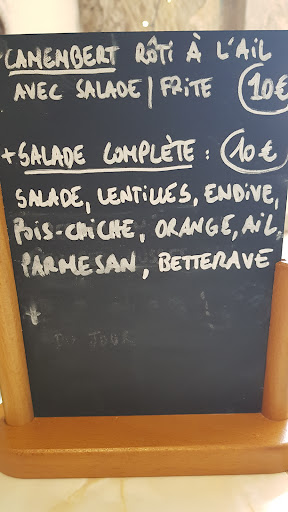 CAMEMBERT RÔTI À L'AIL
AVEC SALADE/FRITE 10€
+ SALADE COMPLÈTE : 10€
SALADE, LENTILLES, ENDIVE,
POIS-CHICHE, ORANGE, AIL,
PARMESAN, BETTERAVE
+
DU JOUR